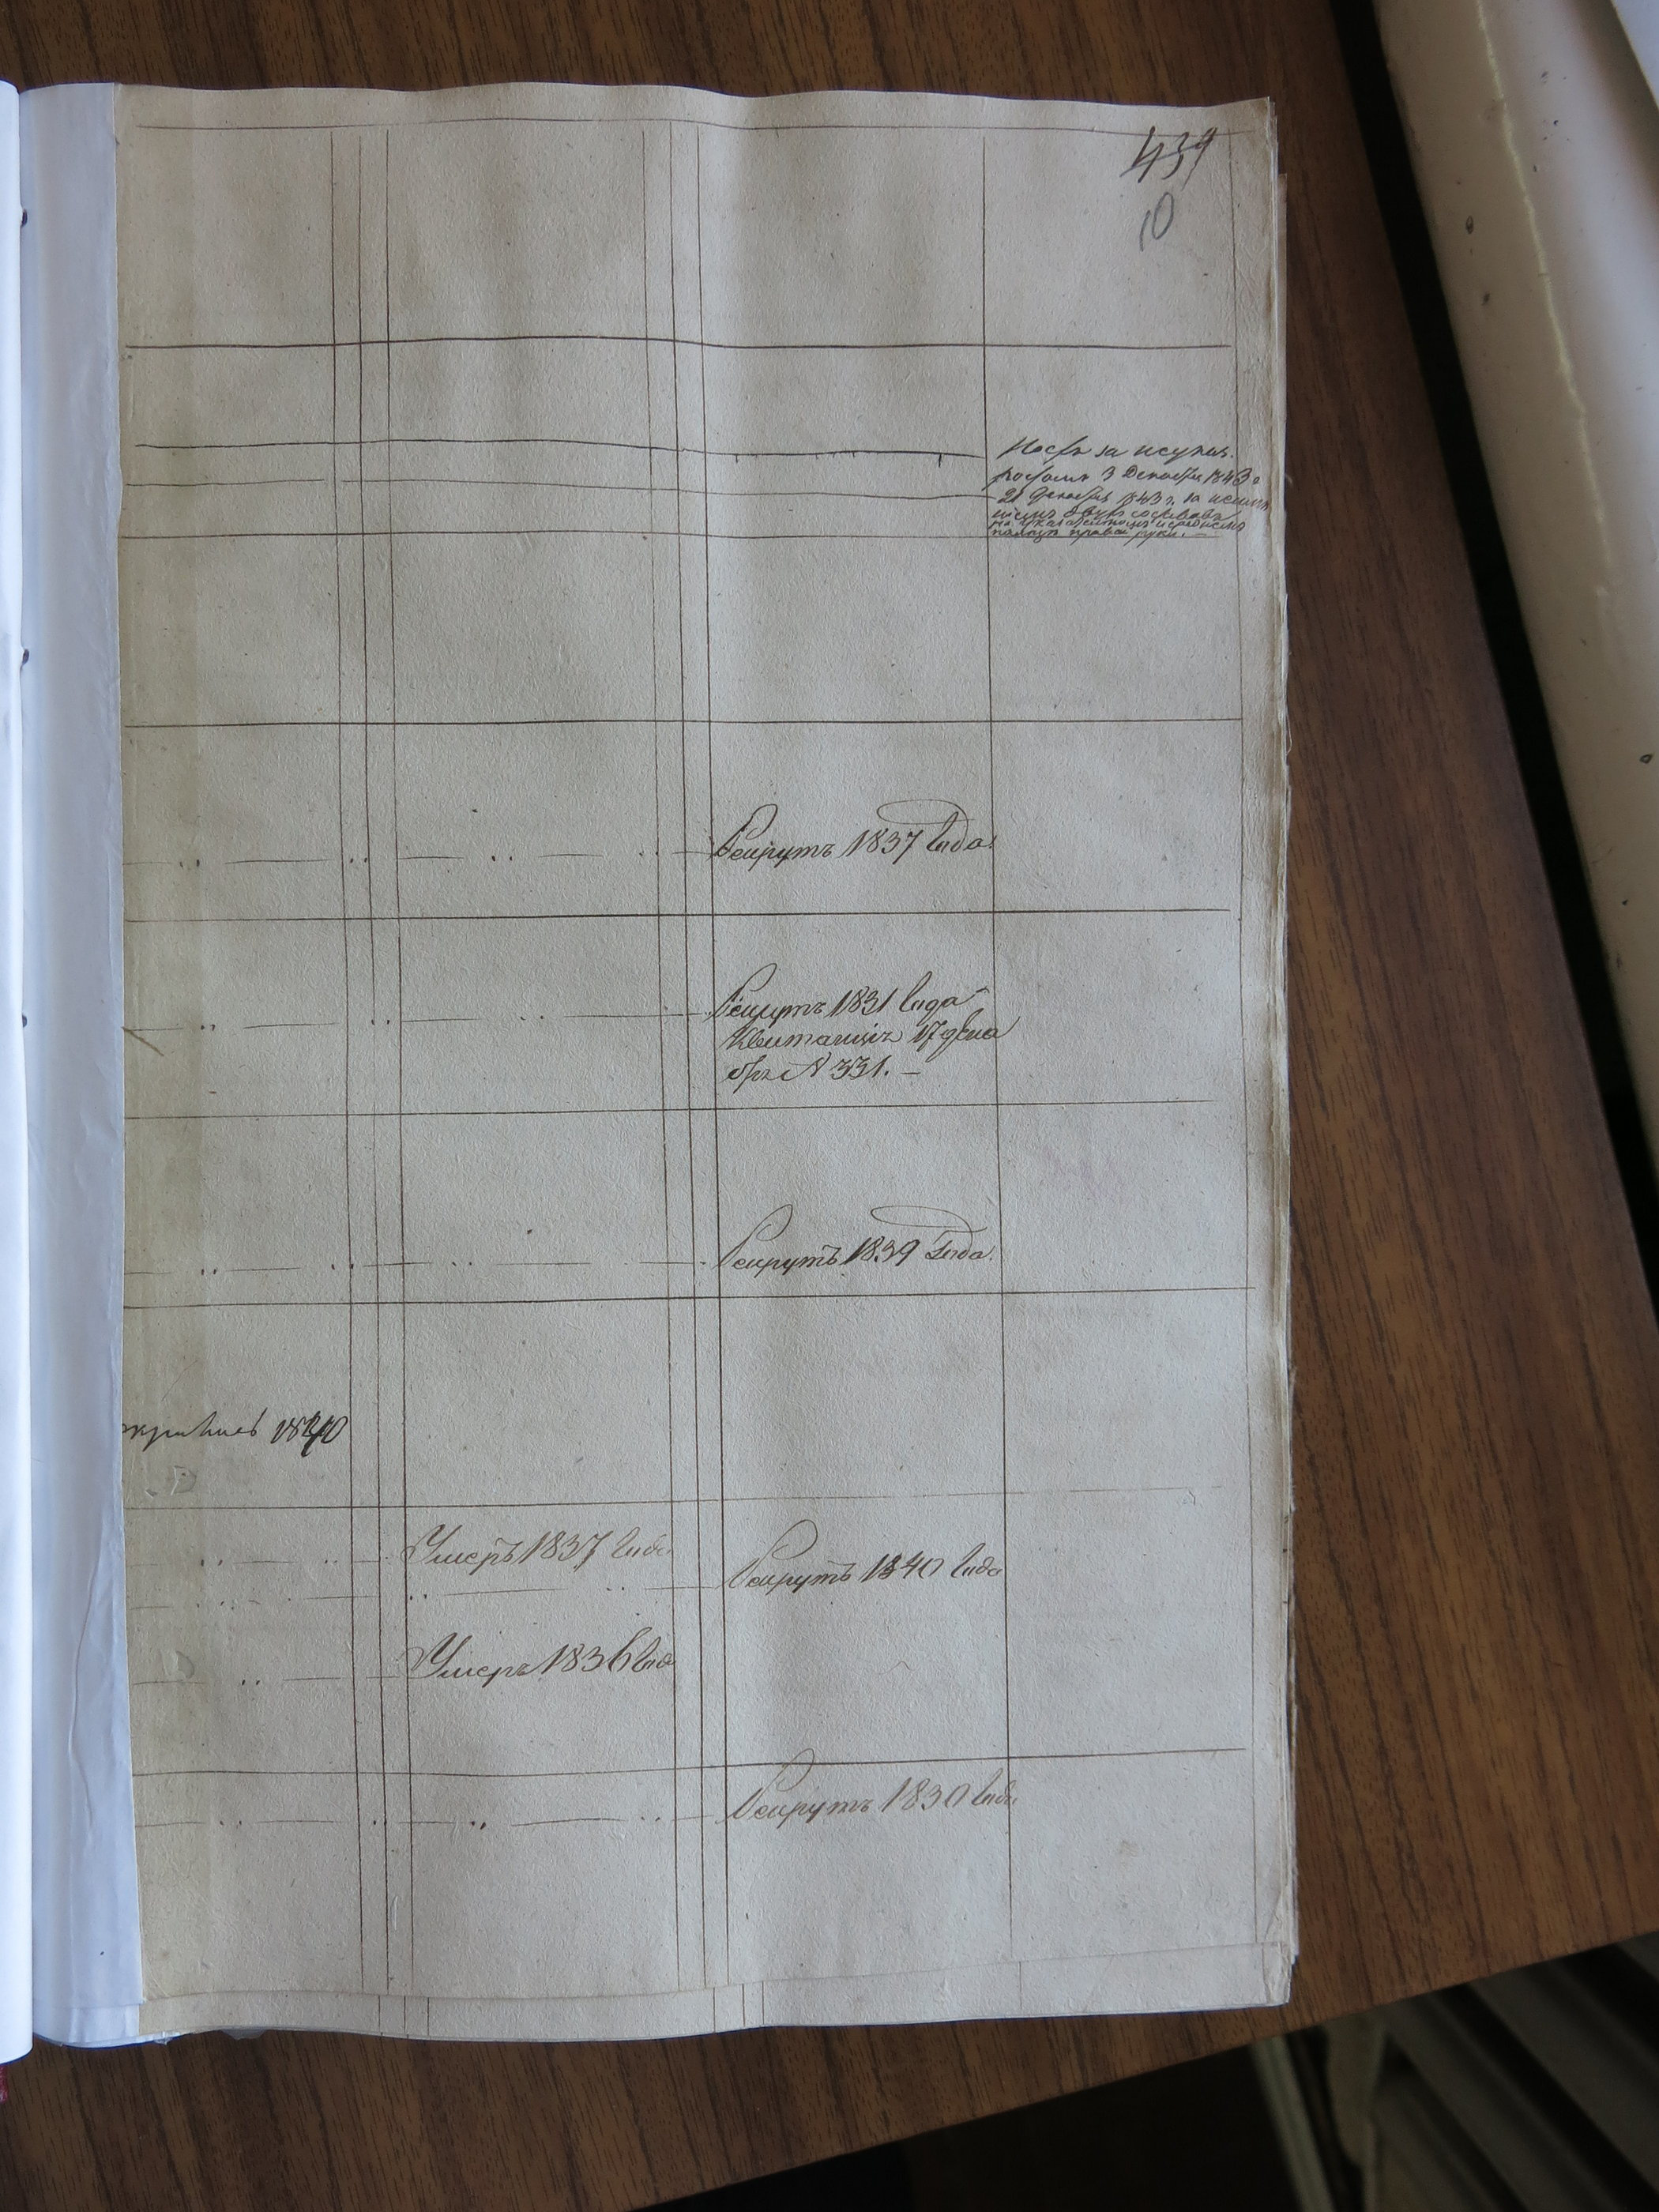 439
10
за
3 Декабря 1843 г
21 Декабря 1843 г. за
двух суставов
на указательном и среднем
пальцах правой руки. —
Рекрутъ 1837 Года.
Рекрутъ 1831 Года
Квитанція 17 дека
бря № 331. —
Рекрутъ 1839 Года.
1840
Умеръ 1837 Года
Рекрутъ 1840 Года
Умеръ 1836 Года
Рекрутъ 1830 Года